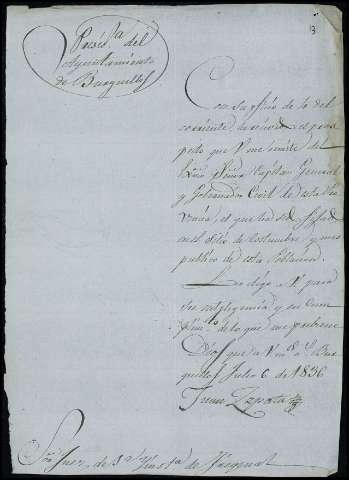 13
Presid.a
del
Ayuntamiento
de Burguillos
Con su oficio de 1o del
corriente he recivido el
que V. me remite del
Exmo Señor Capitan General
y Gobernador Civil de esta Pro
vincia, el que ha sido fijado
en el sitio de costumbre y mas
publico de esta Poblacion.
Lo digo a V. para
su inteligencia y su cum
plim.to de lo que me previene
Dios gue a V. m.s a.s Bur
guillos Julio 6 de 1836
Juan Zapata
Sor Juez de 1a Ynsta de Fregenal